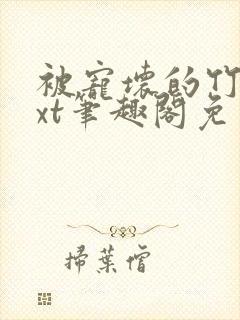 被寵壞的竹
xt筆趣閣免
掃葉僧